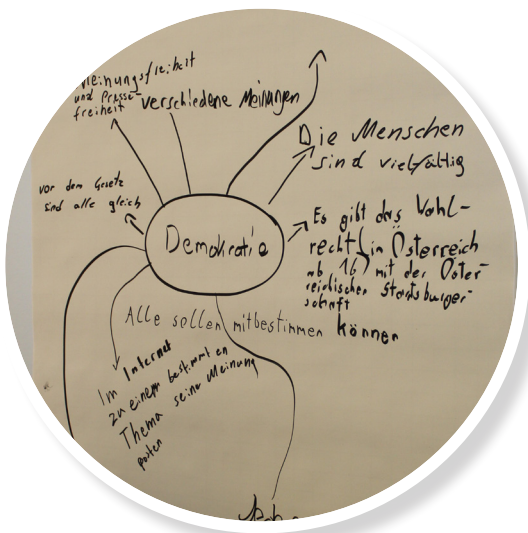 Meinungsfreiheit
und Presse-
freiheit
verschiedene Meinungen
Die Menschen
sind vielfältig
vor dem Gesetz
sind alle gleich
Demokratie
Es gibt das Wahl-
recht (in Österreich
ab 16) mit der Öster-
reichischen Staatsbürger-
schaft
Alle sollen mitbestimmen können
Im Internet
zu einem bestimmten
Thema seine Meinung
posten